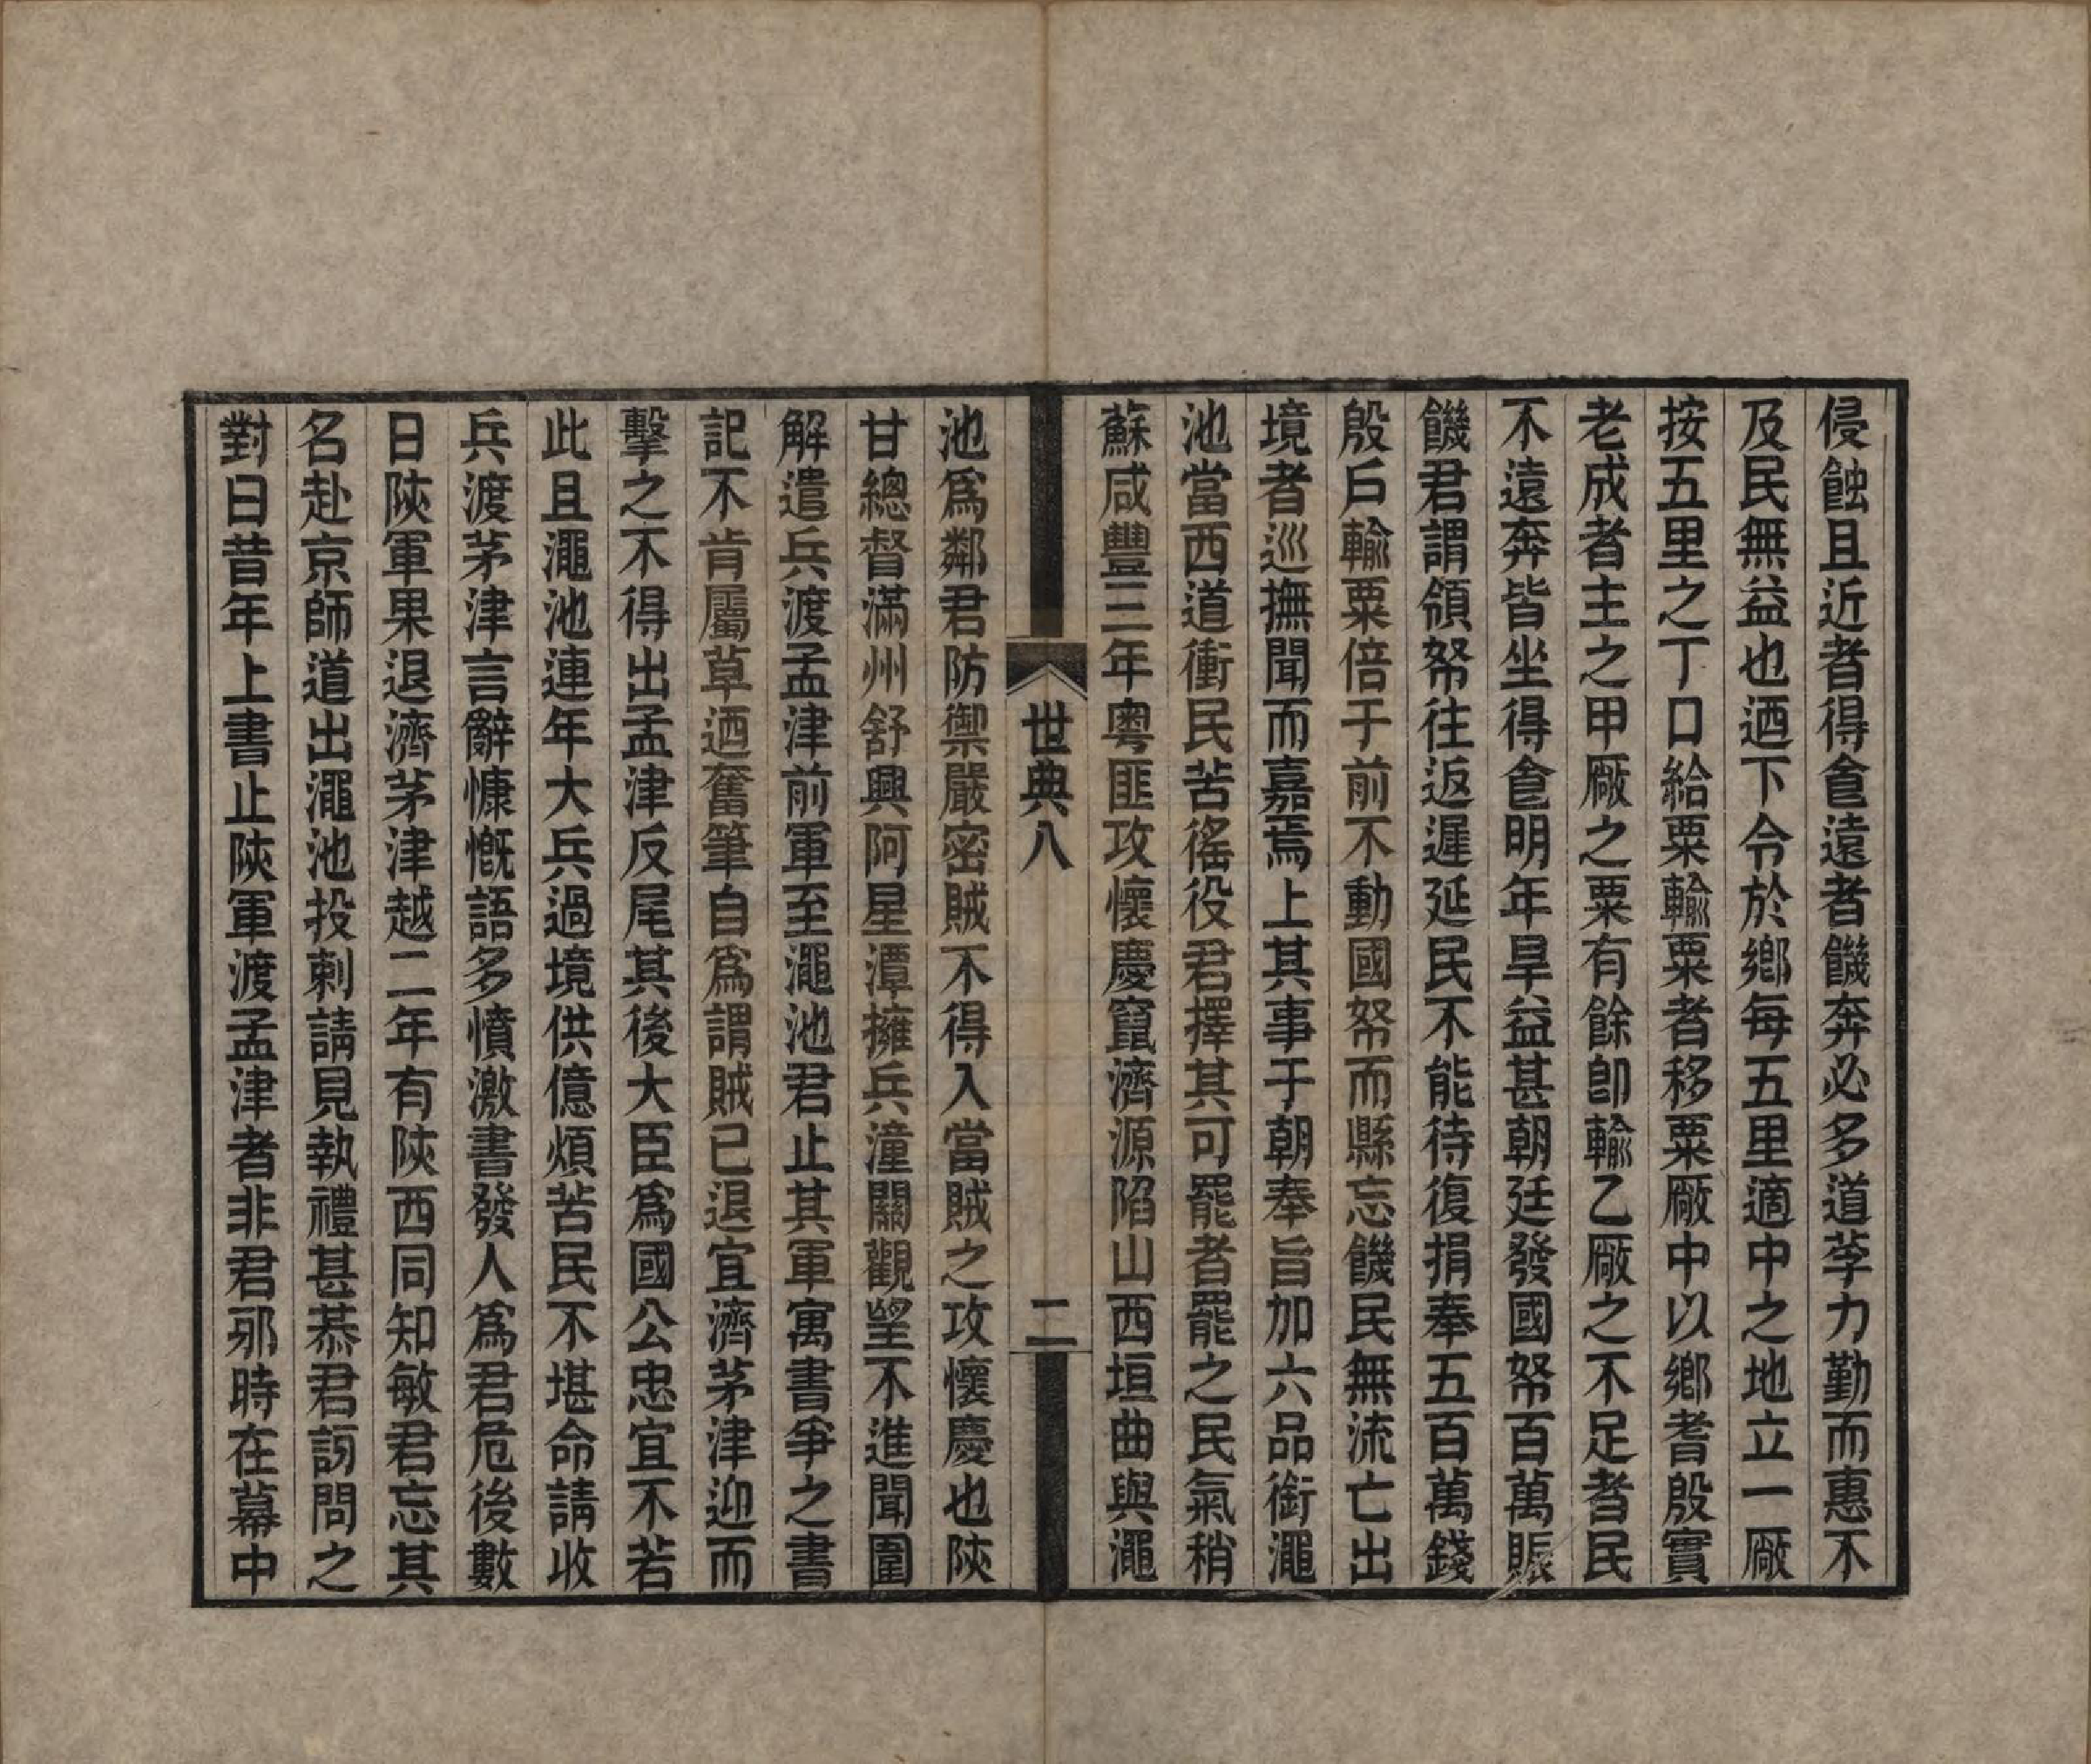 侵蝕且近者得食遠者饑奔必多道莩力勤而惠不
及民無益也迺下令於鄉每五里適中之地立一厰
按五里之丁口給粟輸粟者移粟厰中以鄉耆殷實
老成者主之甲厰之粟有餘卽輸乙厰之不足者民
不遠奔皆坐得食明年旱益甚朝廷發國帑百萬賑
饑君謂領帑往返遲延民不能待復捐奉五百萬錢
殷戶輸粟倍于前不動國帑而縣忘饑民無流亡出
境者巡撫聞而嘉焉上其事于朝奉旨加六品銜澠
池當西道衝民苦徭役君擇其可罷者罷之民氣稍
蘇咸豐三年粵匪攻懷慶竄濟源陷山西垣曲與澠
世典八
二
池爲鄰君防禦嚴密賊不得入當賊之攻懷慶也陝
甘總督滿州舒興阿星潭擁兵潼關觀望不進聞圍
解遣兵渡孟津前軍至澠池君止其軍寓書爭之書
記不肯屬草迺奮筆自爲謂賊已退宜濟茅津迎而
擊之不得出孟津反尾其後大臣爲國公忠宜不若
此且澠池連年大兵過境供億煩苦民不堪命請收
兵渡茅津言辭慷慨語多憤激書發人爲君危後數
日陝軍果退濟茅津越二年有陝西同知敏君忘其
名赴京師道出澠池投刺請見執禮甚恭君訝問之
對曰昔年上書止陝軍渡孟津者非君邪時在幕中